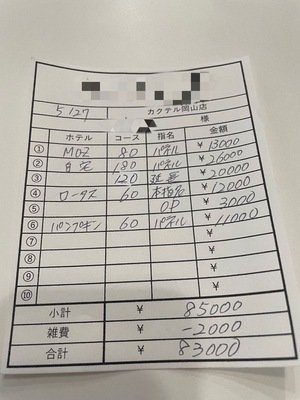 5/27 カクテル岡山店
様
ホテル コース 指名 金額
① MOZ 80 パネル ¥13000
② 自宅 180 パネル ¥26000
③ 120 延長 ¥20000
④ ロータス 60 本指名 ¥12000
⑤ OP ¥3000
⑥ パンプキン 60 パネル ¥11000
⑦ ¥
⑧ ¥
⑨ ¥
⑩ ¥
小計 ¥ 85000
雑費 ¥ -2000
合計 ¥ 83000